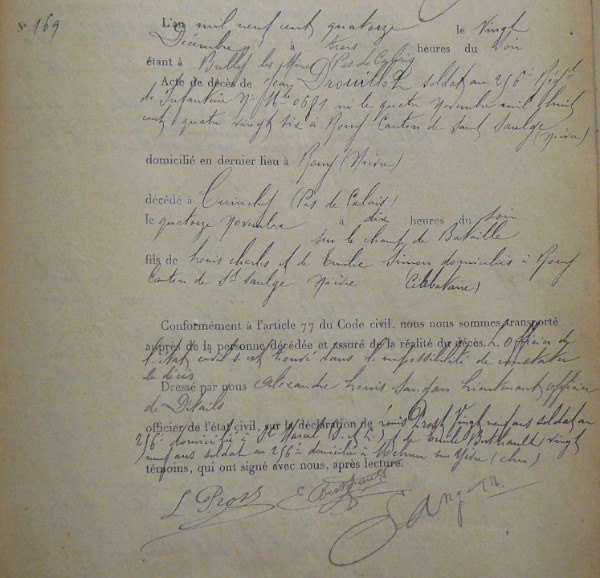 N° 169
L'an mil neuf cent quatorze le vingt
Décembre à trois heures du soir
étant à Bully les Mines (Pas de Calais)
Acte de décès de Jean Drouillot soldat au 256e Régt
de Infanterie Nº Mle 0691 né le quatre Novembre mil huit
cent quatre vingt six à Rouy Canton de Saint Saulge (Nièvre)
domicilié en dernier lieu à Rouy (Nièvre)
décédé à (Pas de Calais)
le quatorze Novembre à dix heures du soir
sur le champ de Bataille
fils de Louis Charles et de Emilie Simon domiciliés à Rouy
Canton de St Saulge Nièvre Célibataire)
Conformément à l'article 77 du Code civil, nous nous sommes transporté
auprès de la personne décédée et assuré de la réalité du décès. L'officier de
l'Etat civil s'est trouvé dans l'impossibilité de constater
le décès
Dressé par nous Alexandre Louis Sangan Lieutenant officier
de Détails
officier de l'état civil, sur la déclaration de Louis Prost vingt neuf ans soldat au
256e domicilié à et de Emile vingt
neuf ans soldat au 256e domicilié à Mehun sur Yèvre (Cher)
témoins, qui ont signé avec nous, après lecture.
L Prost E Sangan